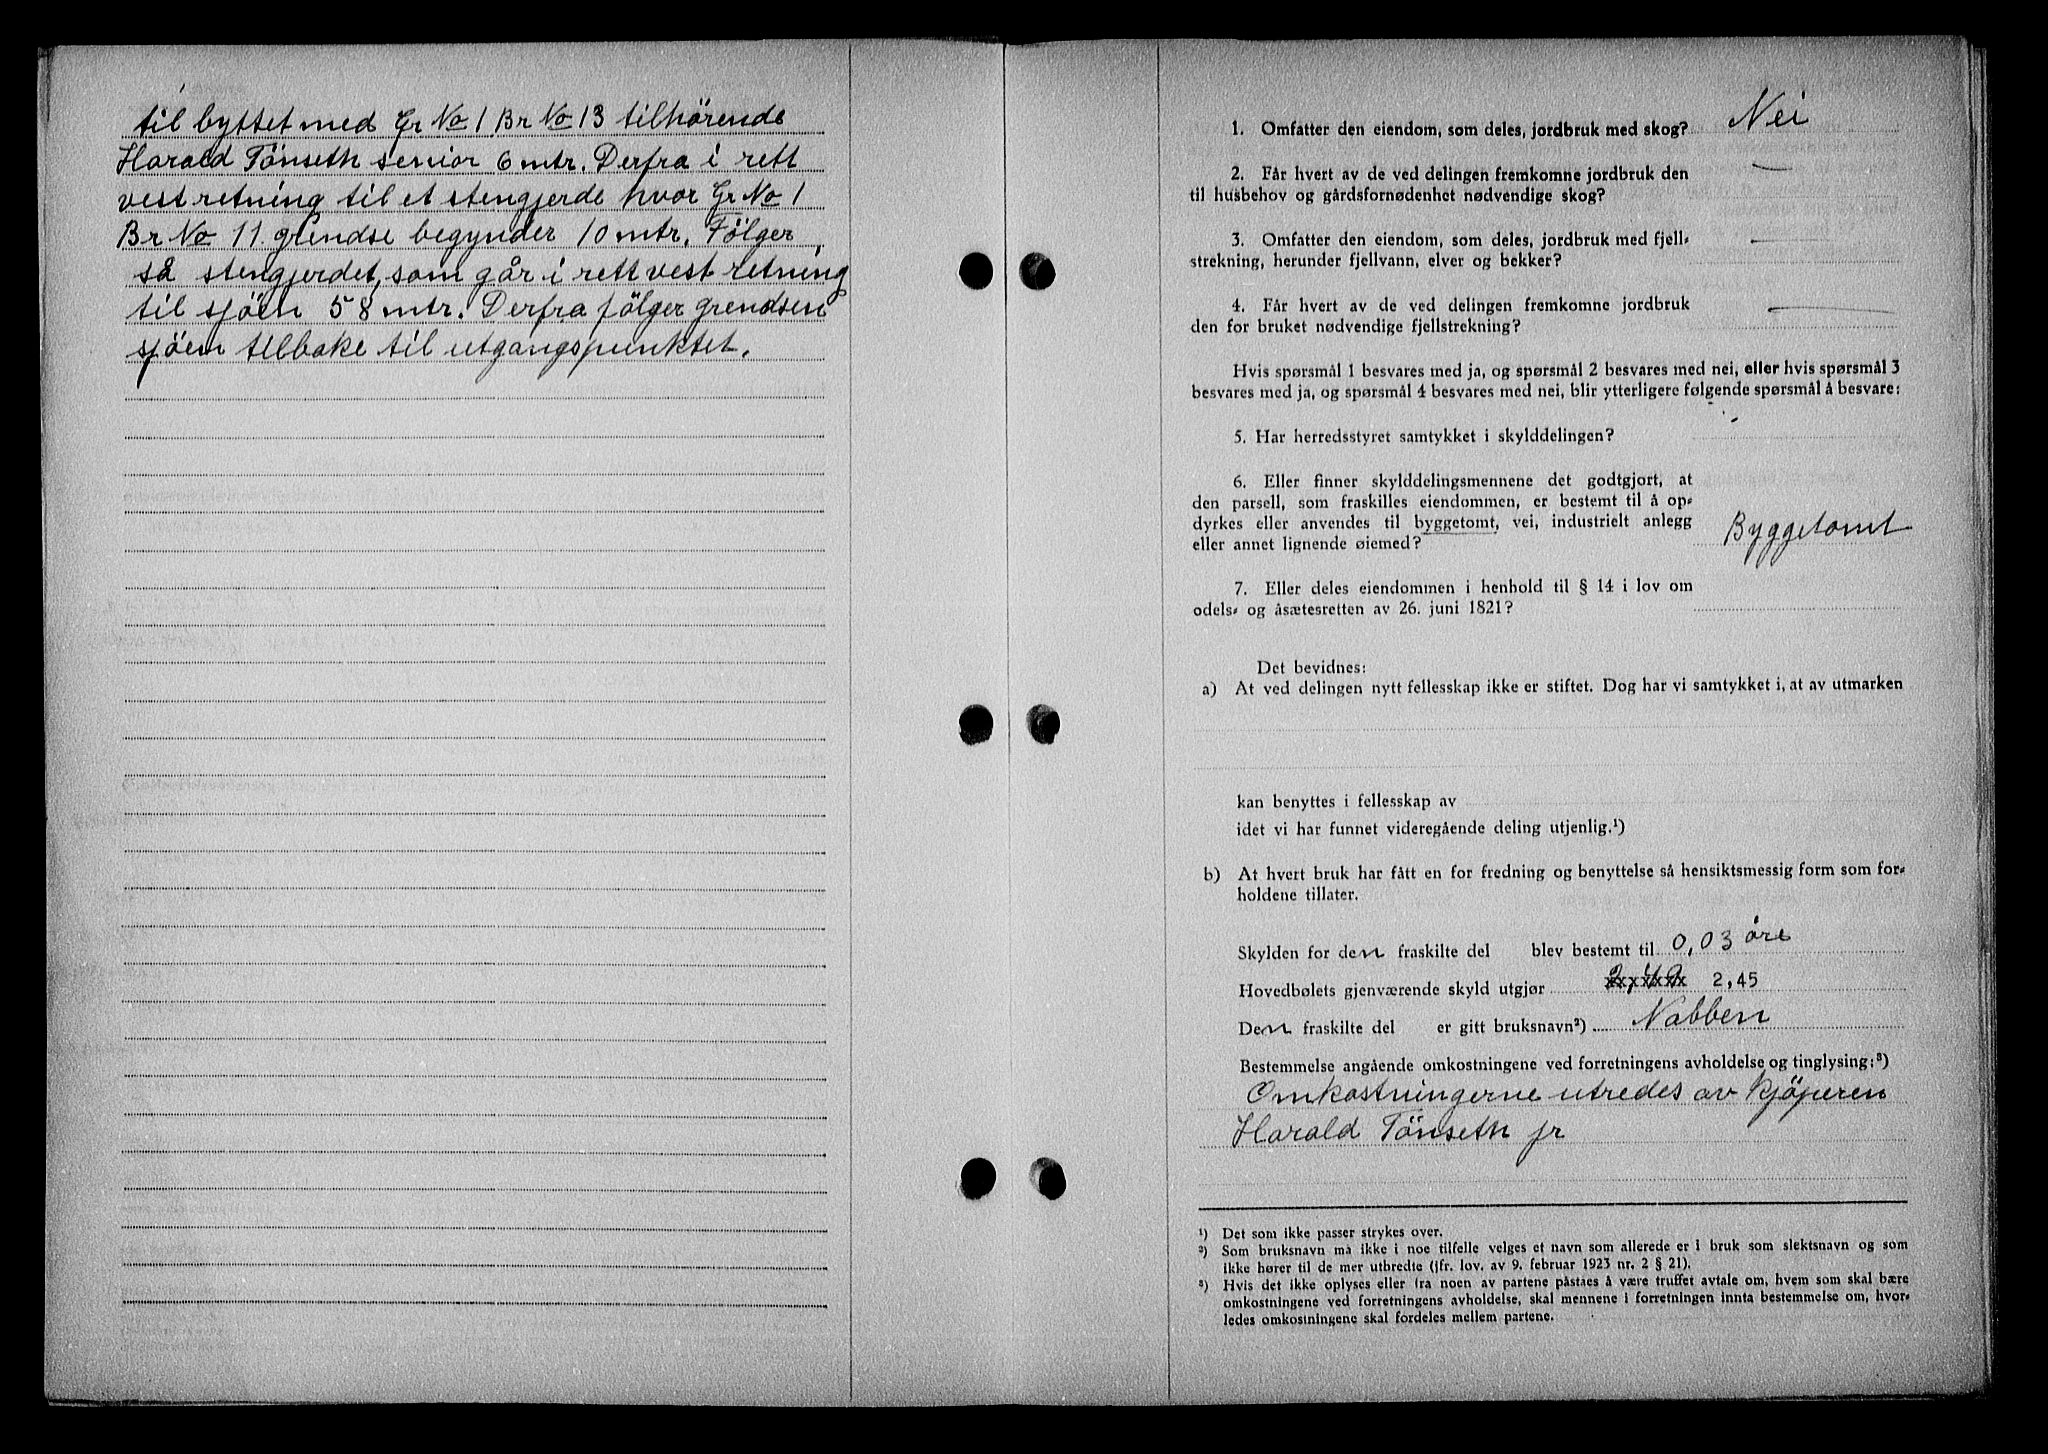 til byttet med Gr No 1 Br No 13 tilhørende
Harald Tönseth senior 6 mtr. Derfra i rett
vest retning til et stengjerde hvor Gr No 1
Br No 11 grendse begynder 10 mtr. Fölger
så stengjerdet, som går i rett vest retning
til sjöen 58 mtr. Derfra fölger grendsen
sjöen tilbake til utgangspunktet.
1. Omfatter den eiendom, som deles, jordbruk med skog? Nei
2. Får hvert av de ved delingen fremkomne jordbruk den
til husbehov og gårdsfornødenhet nødvendige skog? —
3. Omfatter den eiendom, som deles, jordbruk med fjell-
strekning, herunder fjellvann, elver og bekker? —
4. Får hvert av de ved delingen fremkomne jordbruk
den for bruket nødvendige fjellstrekning? —
Hvis spørsmål 1 besvares med ja, og spørsmål 2 besvares med nei, eller hvis spørsmål 3
besvares med ja, og spørsmål 4 besvares med nei, blir ytterligere følgende spørsmål å besvare:
5. Har herredsstyret samtykket i skylddelingen?
6. Eller finner skylddelingsmennene det godtgjort, at
den parsell, som fraskilles eiendommen, er bestemt til å op-
dyrkes eller anvendes til byggetomt, vei, industrielt anlegg
eller annet lignende øiemed? Byggetomt
7. Eller deles eiendommen i henhold til § 14 i lov om
odels- og åsætesretten av 26. juni 1821?
Det bevidnes:
a) At ved delingen nytt fellesskap ikke er stiftet. Dog har vi samtykket i, at av utmarken
kan benyttes i fellesskap av
idet vi har funnet videregående deling utjenlig.¹)
b) At hvert bruk har fått en for fredning og benyttelse så hensiktsmessig form som for-
holdene tillater.
Skylden for den fraskilte del blev bestemt til 0,03 öre
Hovedbølets gjenværende skyld utgjør 2,45
Den fraskilte del er gitt bruksnavn²) Nabben
Bestemmelse angående omkostningene ved forretningens avholdelse og tinglysing:³)
Omkostningerne utredes av kjöperen
Harald Tönseth jr
¹) Det som ikke passer strykes over.
²) Som bruksnavn må ikke i noe tilfelle velges et navn som allerede er i bruk som slektsnavn og som
ikke hører til de mer utbredte (jfr. lov. av 9. februar 1923 nr. 2 § 21).
³) Hvis det ikke oplyses eller fra noen av partene påstaes å være truffet avtale om, hvem som skal bære
omkostningene ved forretningens avholdelse, skal mennene i forretningen innta bestemmelse om, hvor-
ledes omkostningene skal fordeles mellem partene.